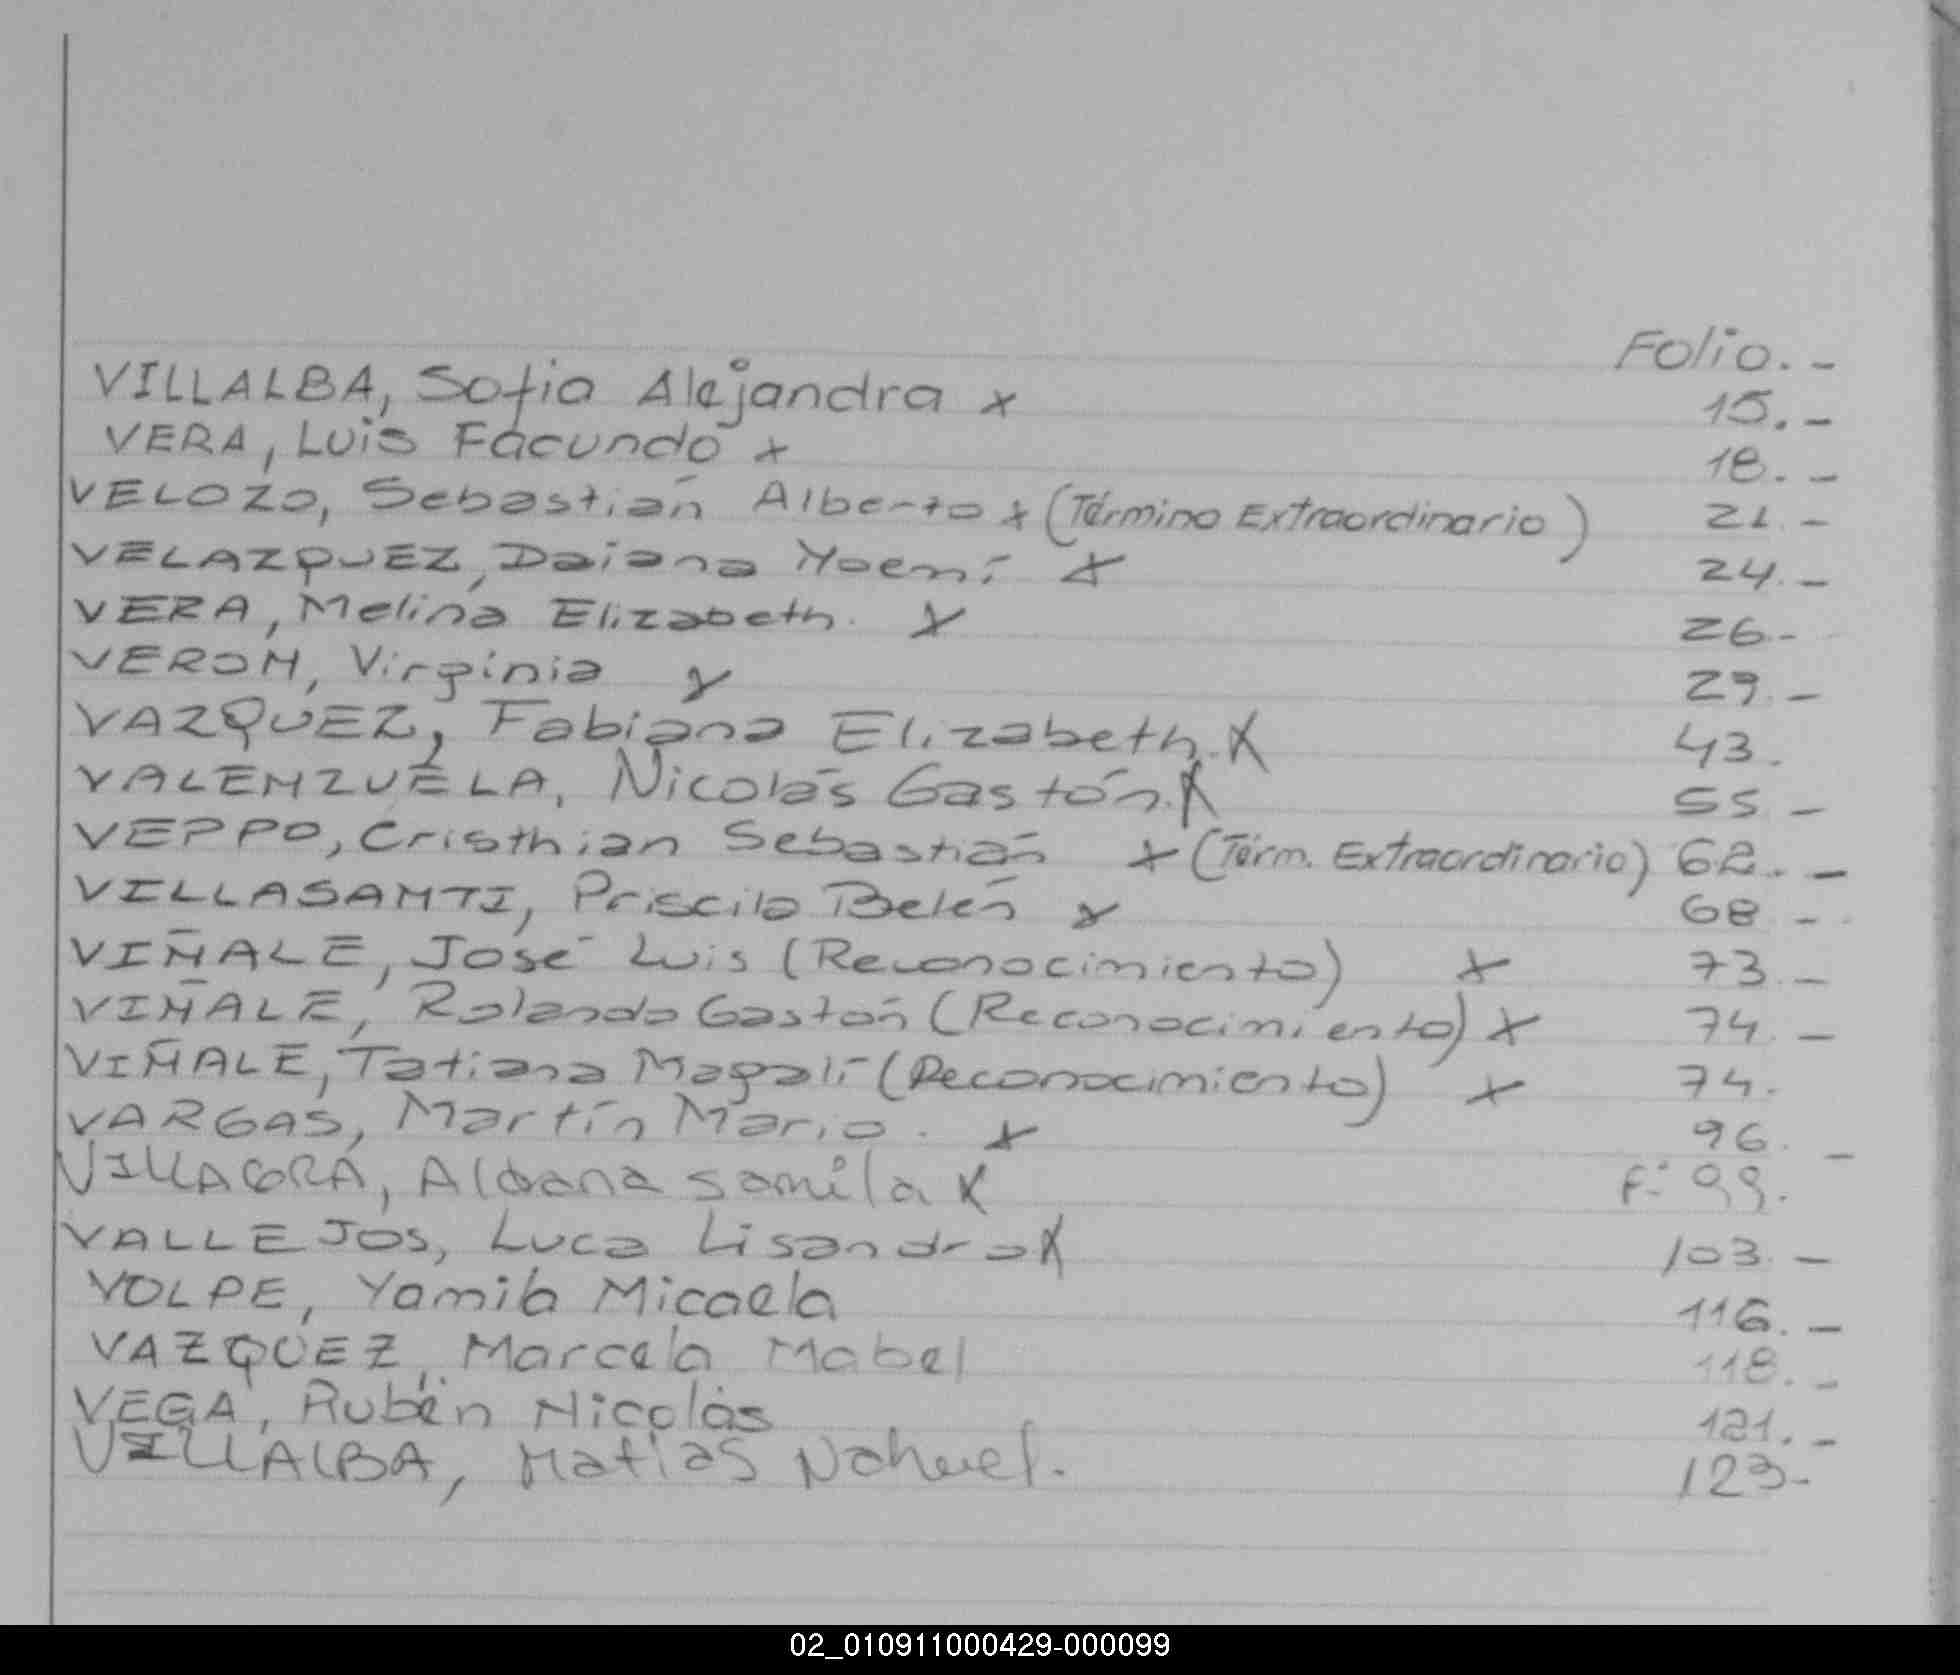 Folio.-
VILLALBA, Sofia Alejandra x 15.-
VERA, Luis Facundo x 18.-
VELOZO, Sebastián Alberto x (Término Extraordinario) 21.-
VELAZQUEZ, Daiana Noemí x 24.-
VERA, Melina Elizabeth. x 26.-
VERON, Virginia x 29.-
VAZQUEZ, Fabiana Elizabeth. X 43.
VALENZUELA, Nicolás Gastón. X 55 -
VEPPO, Cristhian Sebastián x (Térm. Extraordinario) 62.-
VILLASANTI, Priscila Belén x 68 -
VIÑALE, José Luis (Reconocimiento) x 73.-
VIÑALE, Rolando Gastón (Reconocimiento) x 74.-
VIÑALE, Tatiana Magalí (Reconocimiento) x 74.
VARGAS, Martín Mario. x 96.-
VILLAGRA, Aldana Samila X F: 99.
VALLEJOS, Luca Lisandro X 103.-
VOLPE, Yamila Micaela 116.-
VAZQUEZ, Marcela Mabel 118.-
VEGA, Rubén Nicolás 121.-
VILLALBA, Matías Nahuel. 123-
02_010911000429-000099